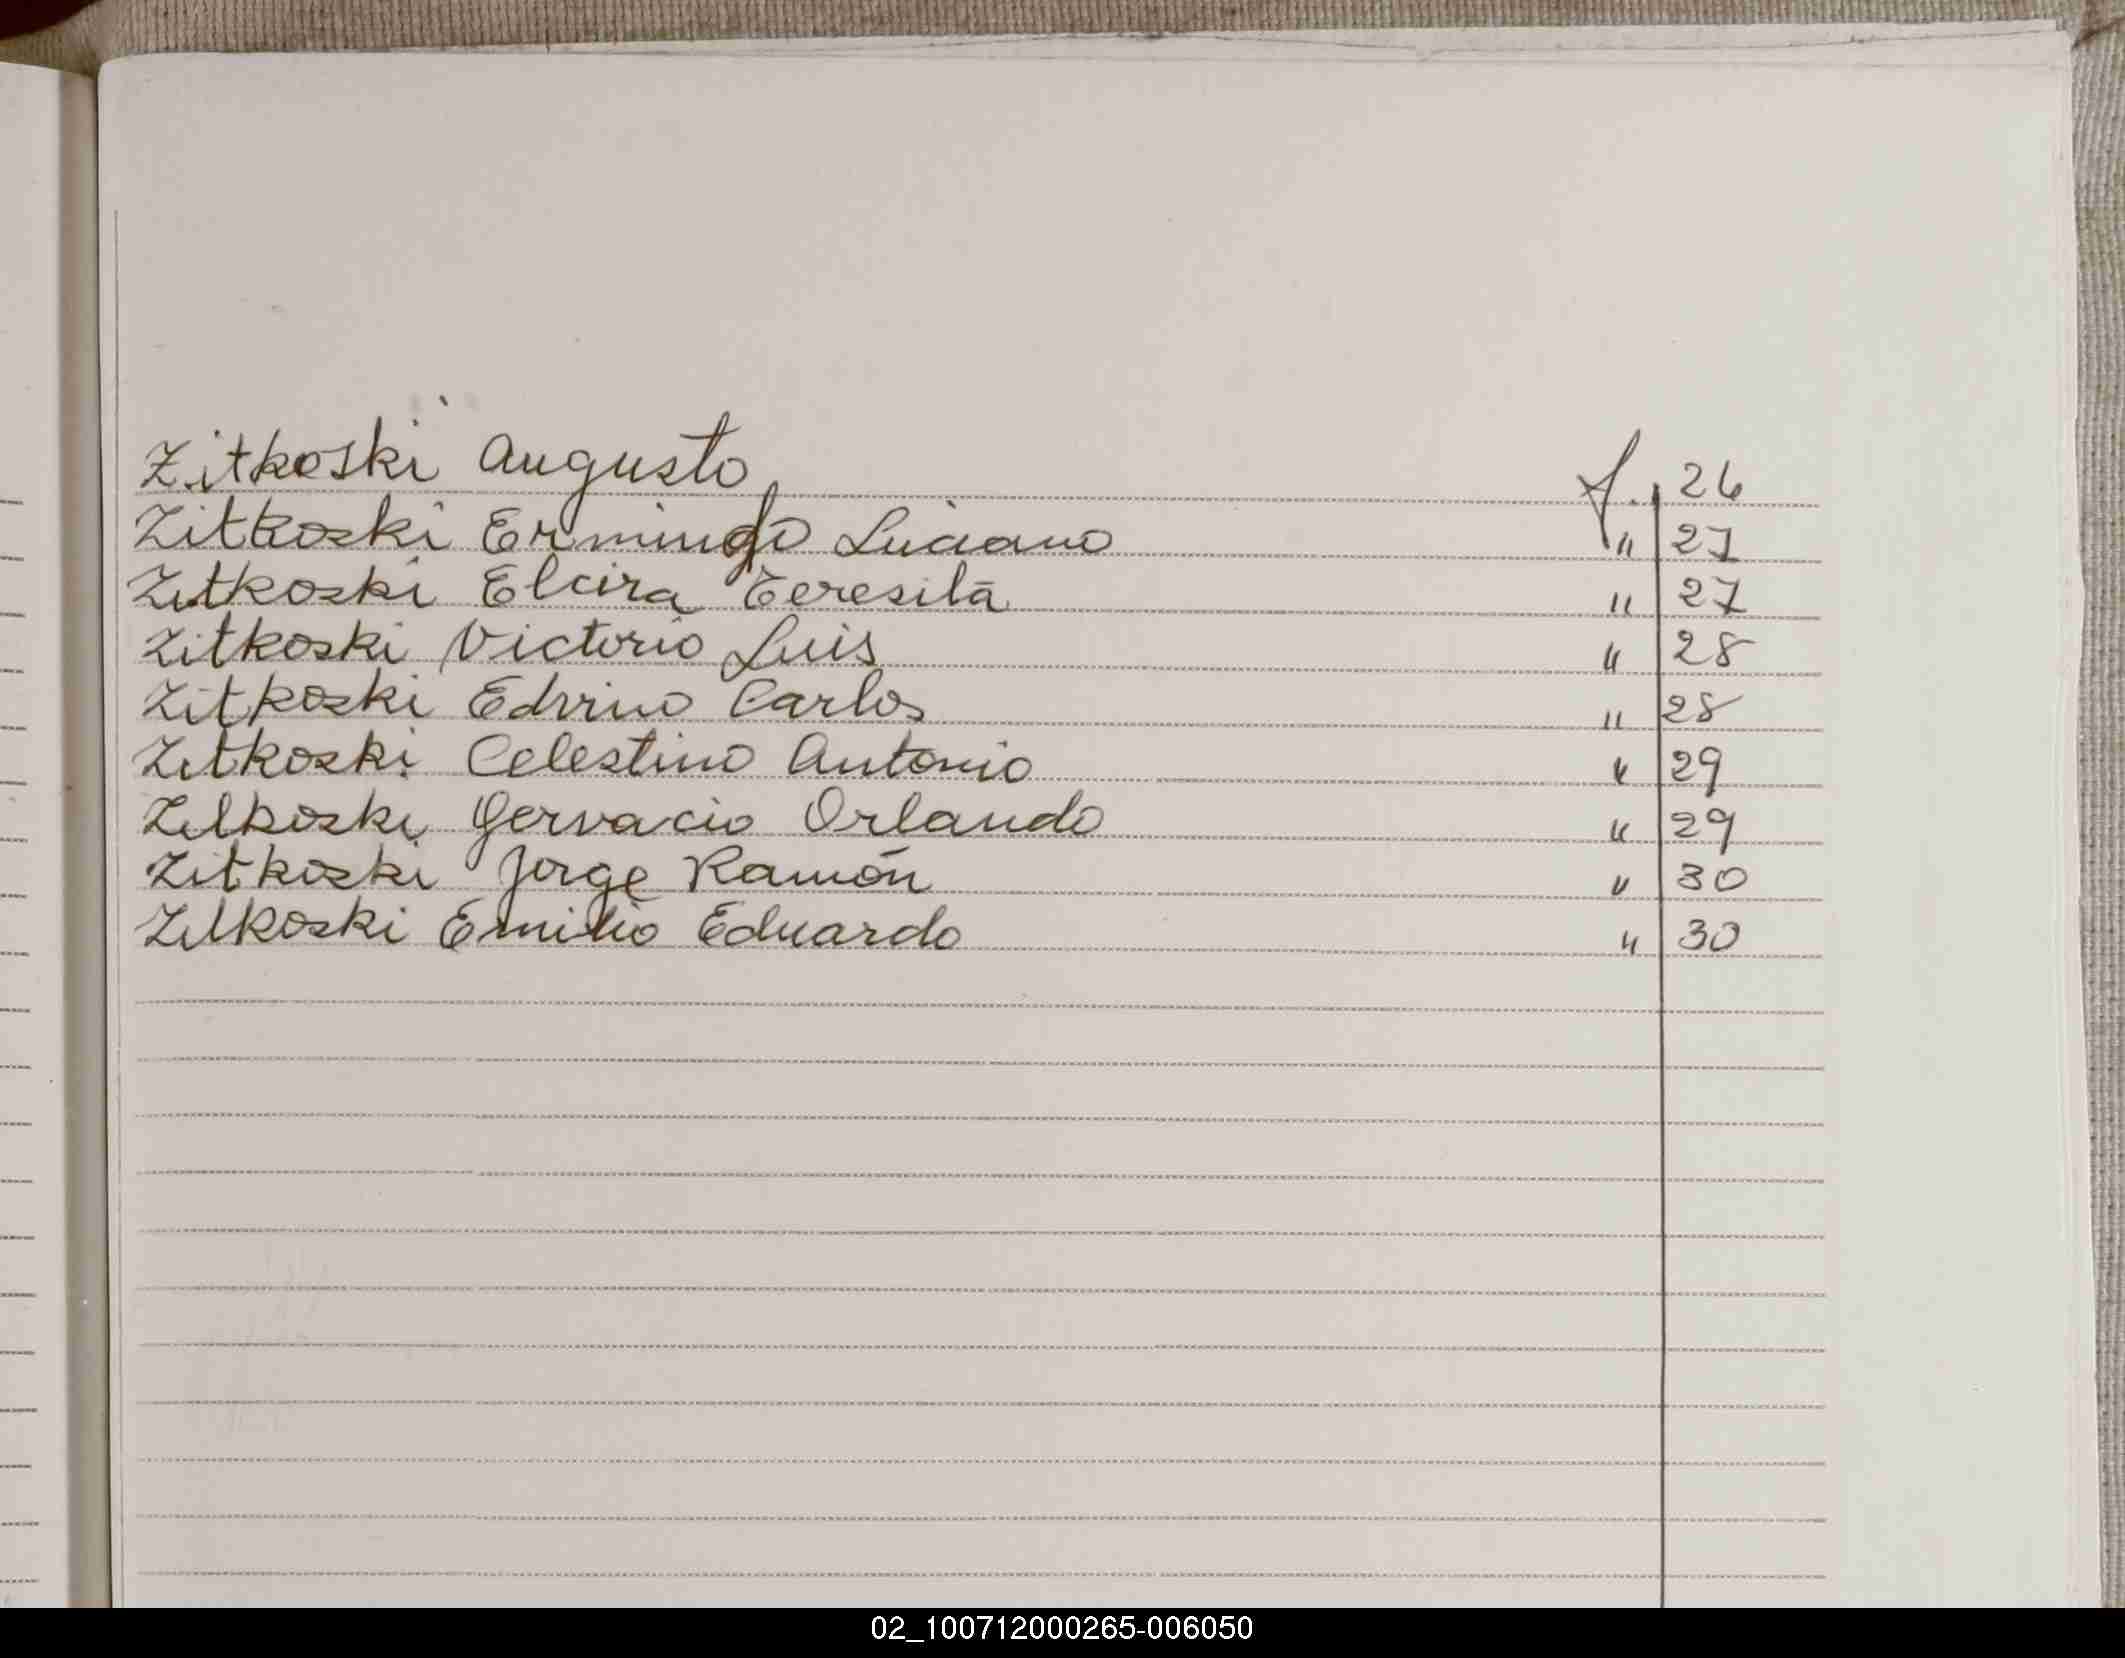 Zitkoski Augusto f. 26
Zitkoski Ermindo Luciano " 27
Zitkoski Elcira Teresita " 27
Zitkoski Victorio Luis " 28
Zitkoski Edvino Carlos " 28
Zitkoski Celestino Antonio " 29
Zitkoski Gervacio Orlando " 29
Zitkoski Jorge Ramón " 30
Zitkoski Emilio Eduardo " 30
02_100712000265-006050